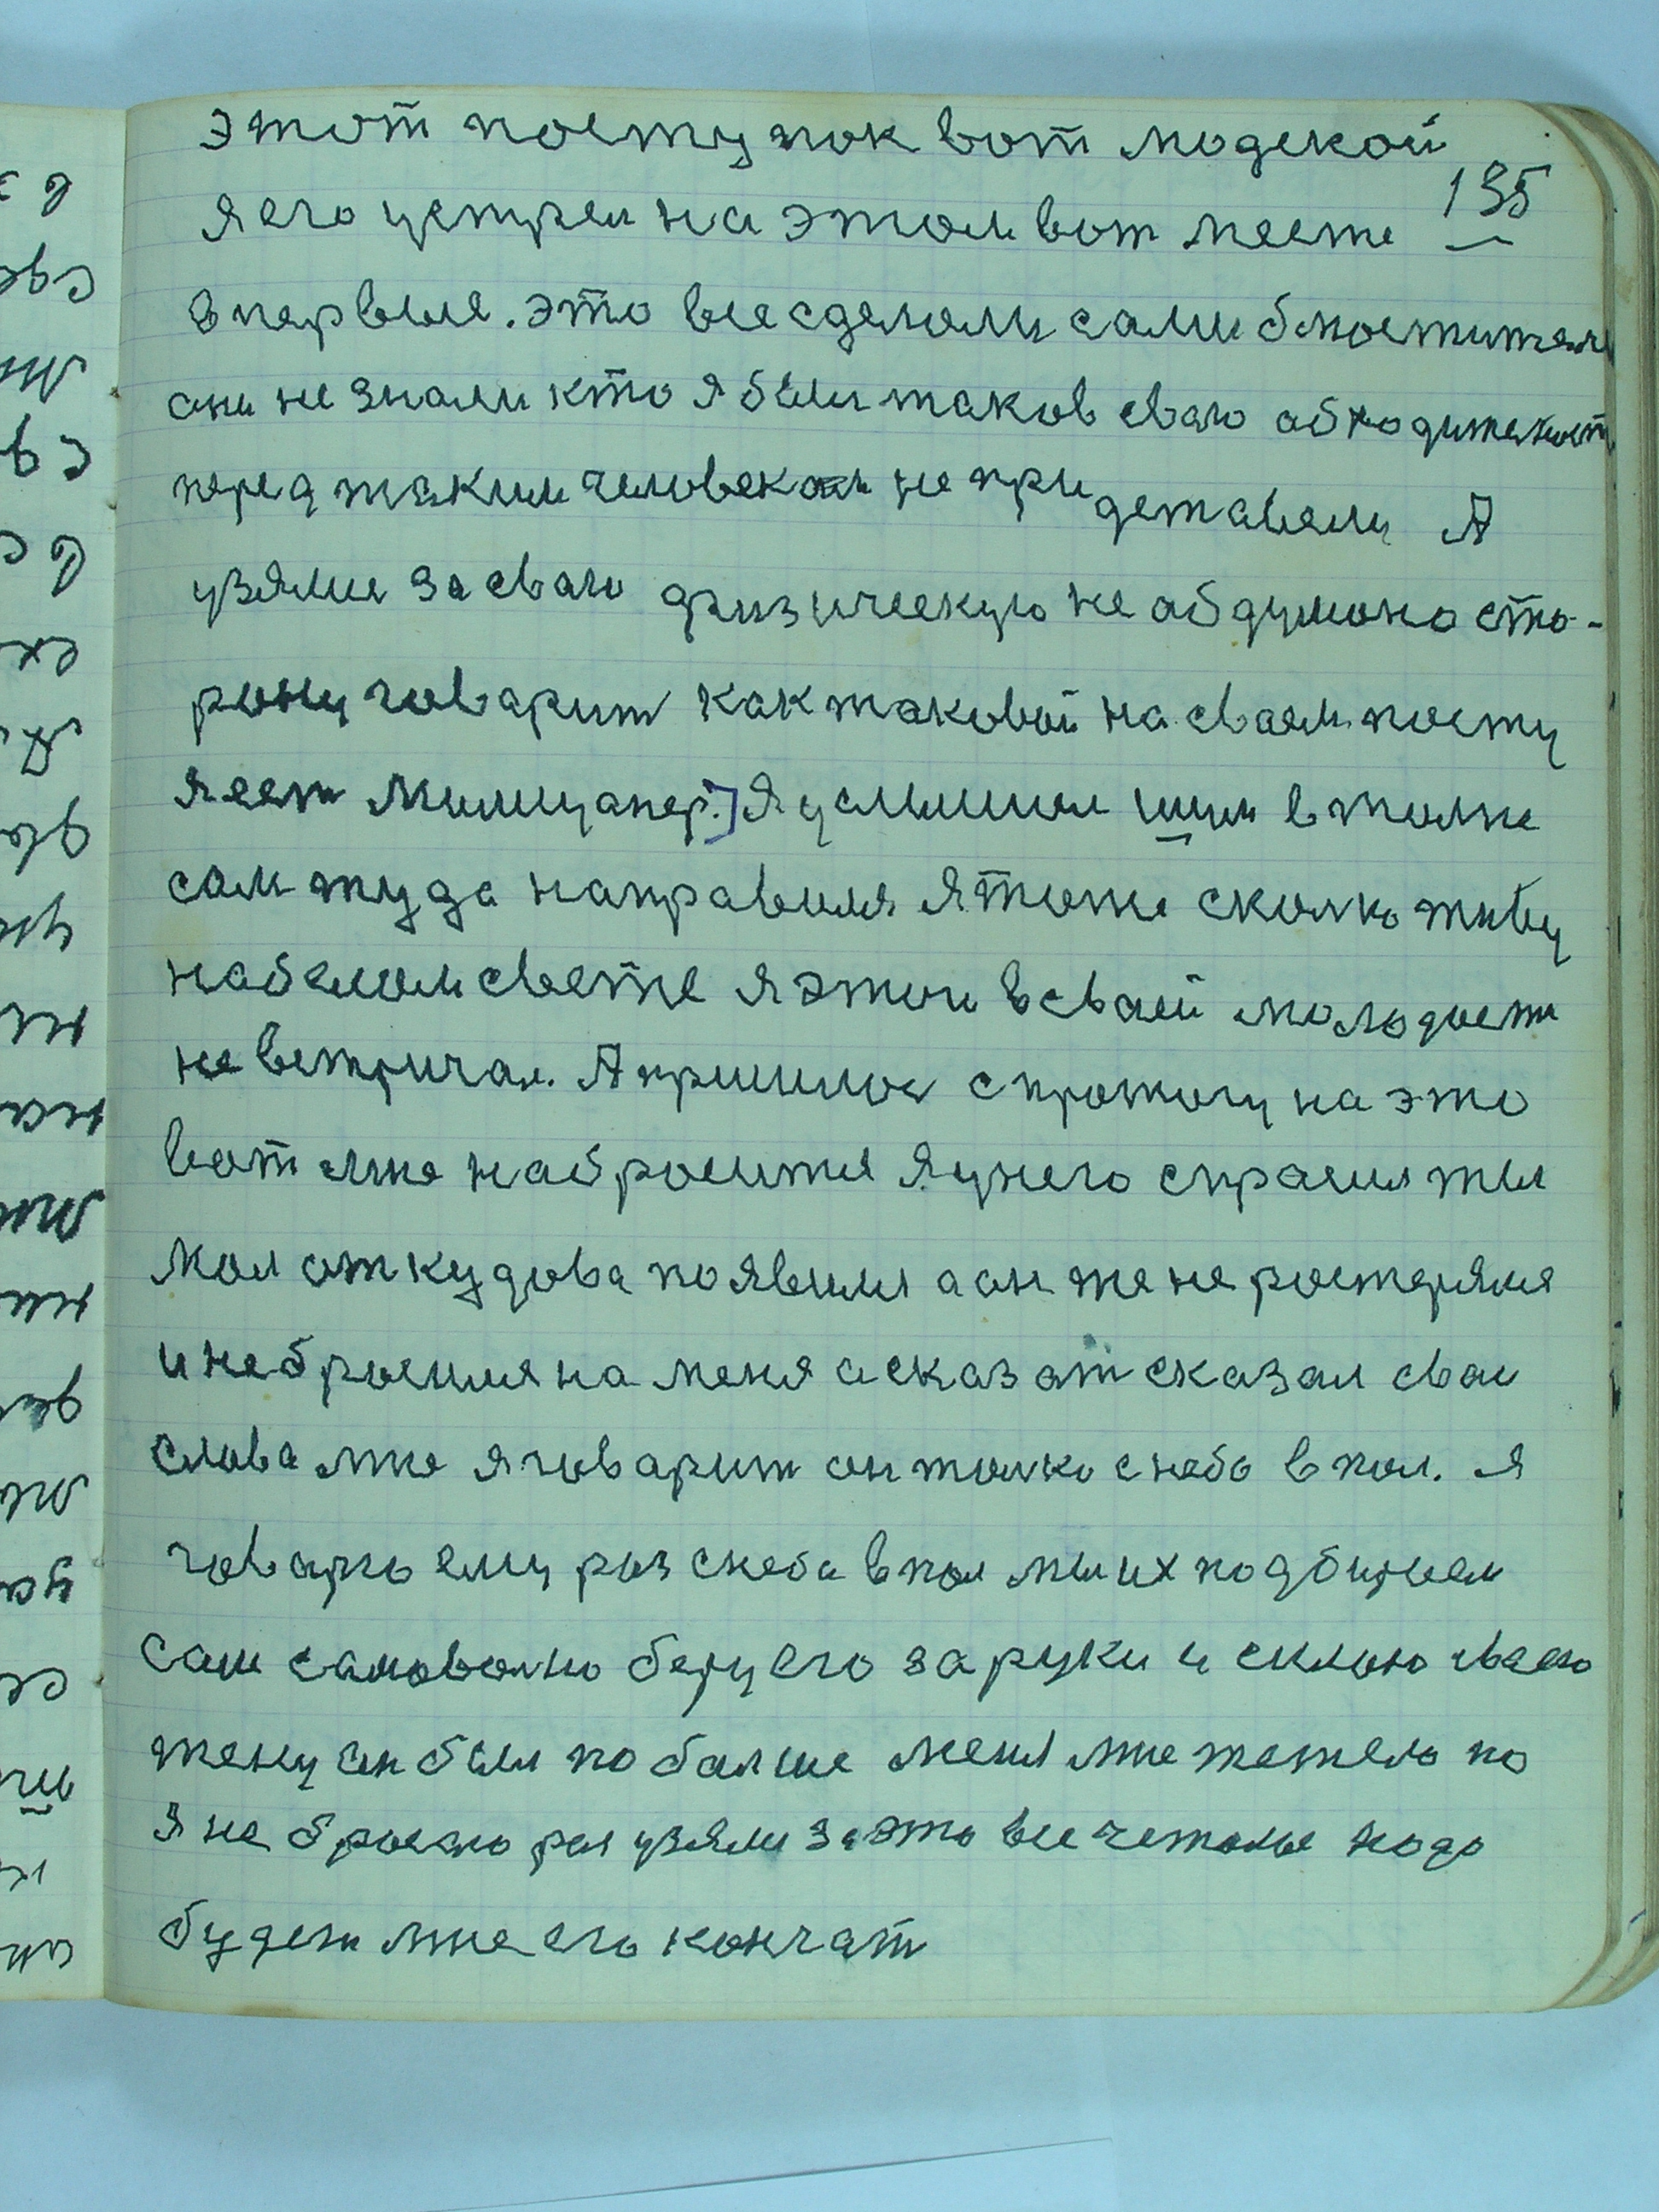 этот поступок вот людской
135
я его устрел на этом вот месте
впервые. это все сделали сами блюстители
они не знали кто я был таков сваю обходительност
перед таким человеком не придставели А
узяли за сваю физическую не обдумоно сто-
рону говарит как таковой на сваем посту
я ест милицанер.] Я услышал шум в толпе
сам туда направиля я тоже сколко живу
на белом свете я этои в сваей молодости
не встричал. А пришлос спротогу на это
вот мне наброситя я у него спрасил ты
мол откудова появиля а он же не ростерялся
и не бросился на меня а сказат сказал сваи
слова мне я говарит он толко с неба в пол. я
говарю ему раз с неба в пол мы их подбираем
сам самоволно беру его за руки и склоню сваею
жену он был по болше меня мне тежело но
я не бросаю раз узяли за это все четыре надо
будет мне его кончат